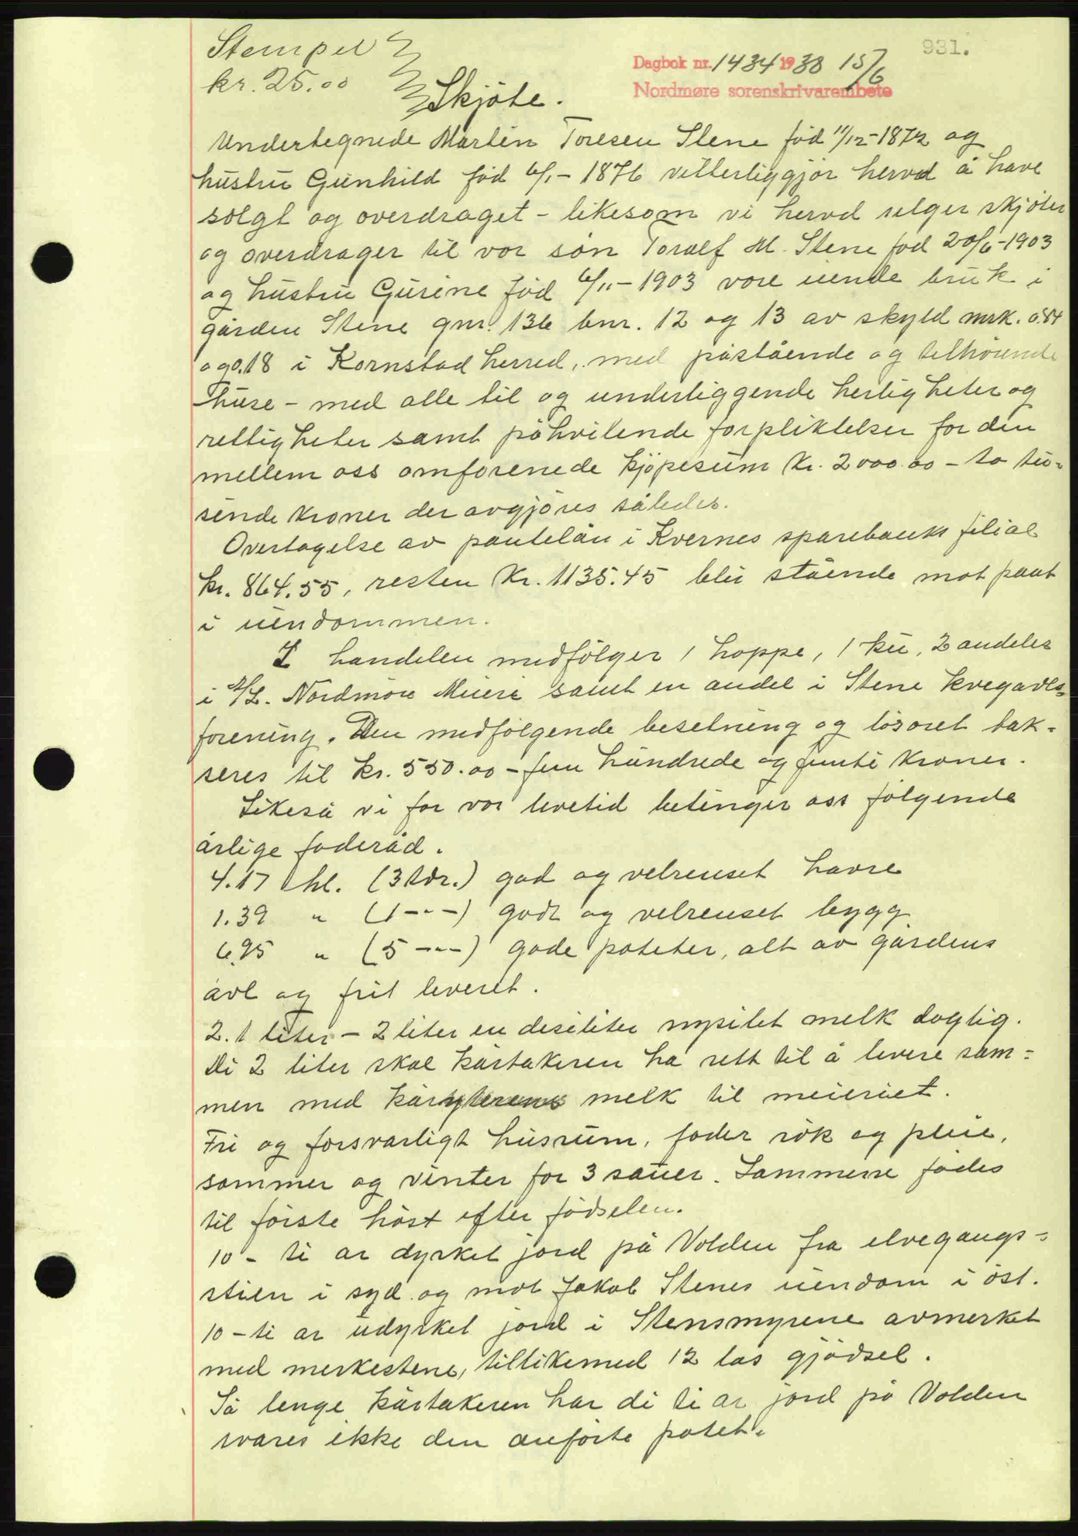 Stempel
kr. 25.00
931.
Dagbok nr. 1434 1938 15/6
Nordmøre sorenskrivarembete
Skjøte.
Undertegnede Martin Toresen Stene fød 11/12-1872 og
hustru Gunhild fød 6/1-1876 vitterliggjør herved å have
solgt og overdraget - likesom vi herved selger skjøter
og overdrager til vor søn Toralf M. Stene fød 20/6-1903
og hustru Gurine fød 6/11-1903 vore eiende bruk i
gården Stene gnr. 136 bnr. 12 og 13 av skyld mrk. 0.84
og 0.18 i Kornstad herred, med påstående og tilhørende
huse - med alle til og underliggende herligheter og
rettigheter samt påhvilende forpliktelser for den
mellem oss omforenede kjøpesum kr. 2000.00 - to tu-
sende kroner der avgjøres således.
Overtagelse av pantelån i Kvernes sparebank filial
kr. 864.55, resten kr. 1135.45 blir stående mot pant
i eiendommen.
I handelen medfølger 1 hoppe, 1 ku, 2 andeler
i A/L. Nordmøre Mieri samt en andel i Stene kvegavls-
forening. Den medfølgende besetning og løsøret tak-
seres til kr. 550.00 - fem hundrede og femti kroner.
Likeså vi for vor levetid betinger oss følgende
årlige foderåd.
4.17 hl. (3 tdr.) god og velrenset havre
1.39 " (1 -"-) godt og velrenset bygg
6.95 " (5 -"-) gode poteter, alt av gårdens
avl og frit leveret.
2.1 liter - 2 liter en desiliter nysilet melk daglig.
Di 2 liter skal kårtakeren ha rett til å levere sam-
men med kåryterens melk til meieriet.
Fri og forsvarligt husrum, foder røk og pleie,
sommer og vinter for 3 sauer. Lammene fødes
til første høst efter fødselen.
10 - ti ar dyrket jord på Volden fra elvegangs-
stien i syd og mot Jakob Stenes eiendom i øst.
10 - ti ar udyrket jord i Stensmyrene avmerket
med merkestene, tillikemed 12 las gjødsel.
Så lenge kårtakeren har di ti ar jord på Volden
svares ikke den anførte potet-